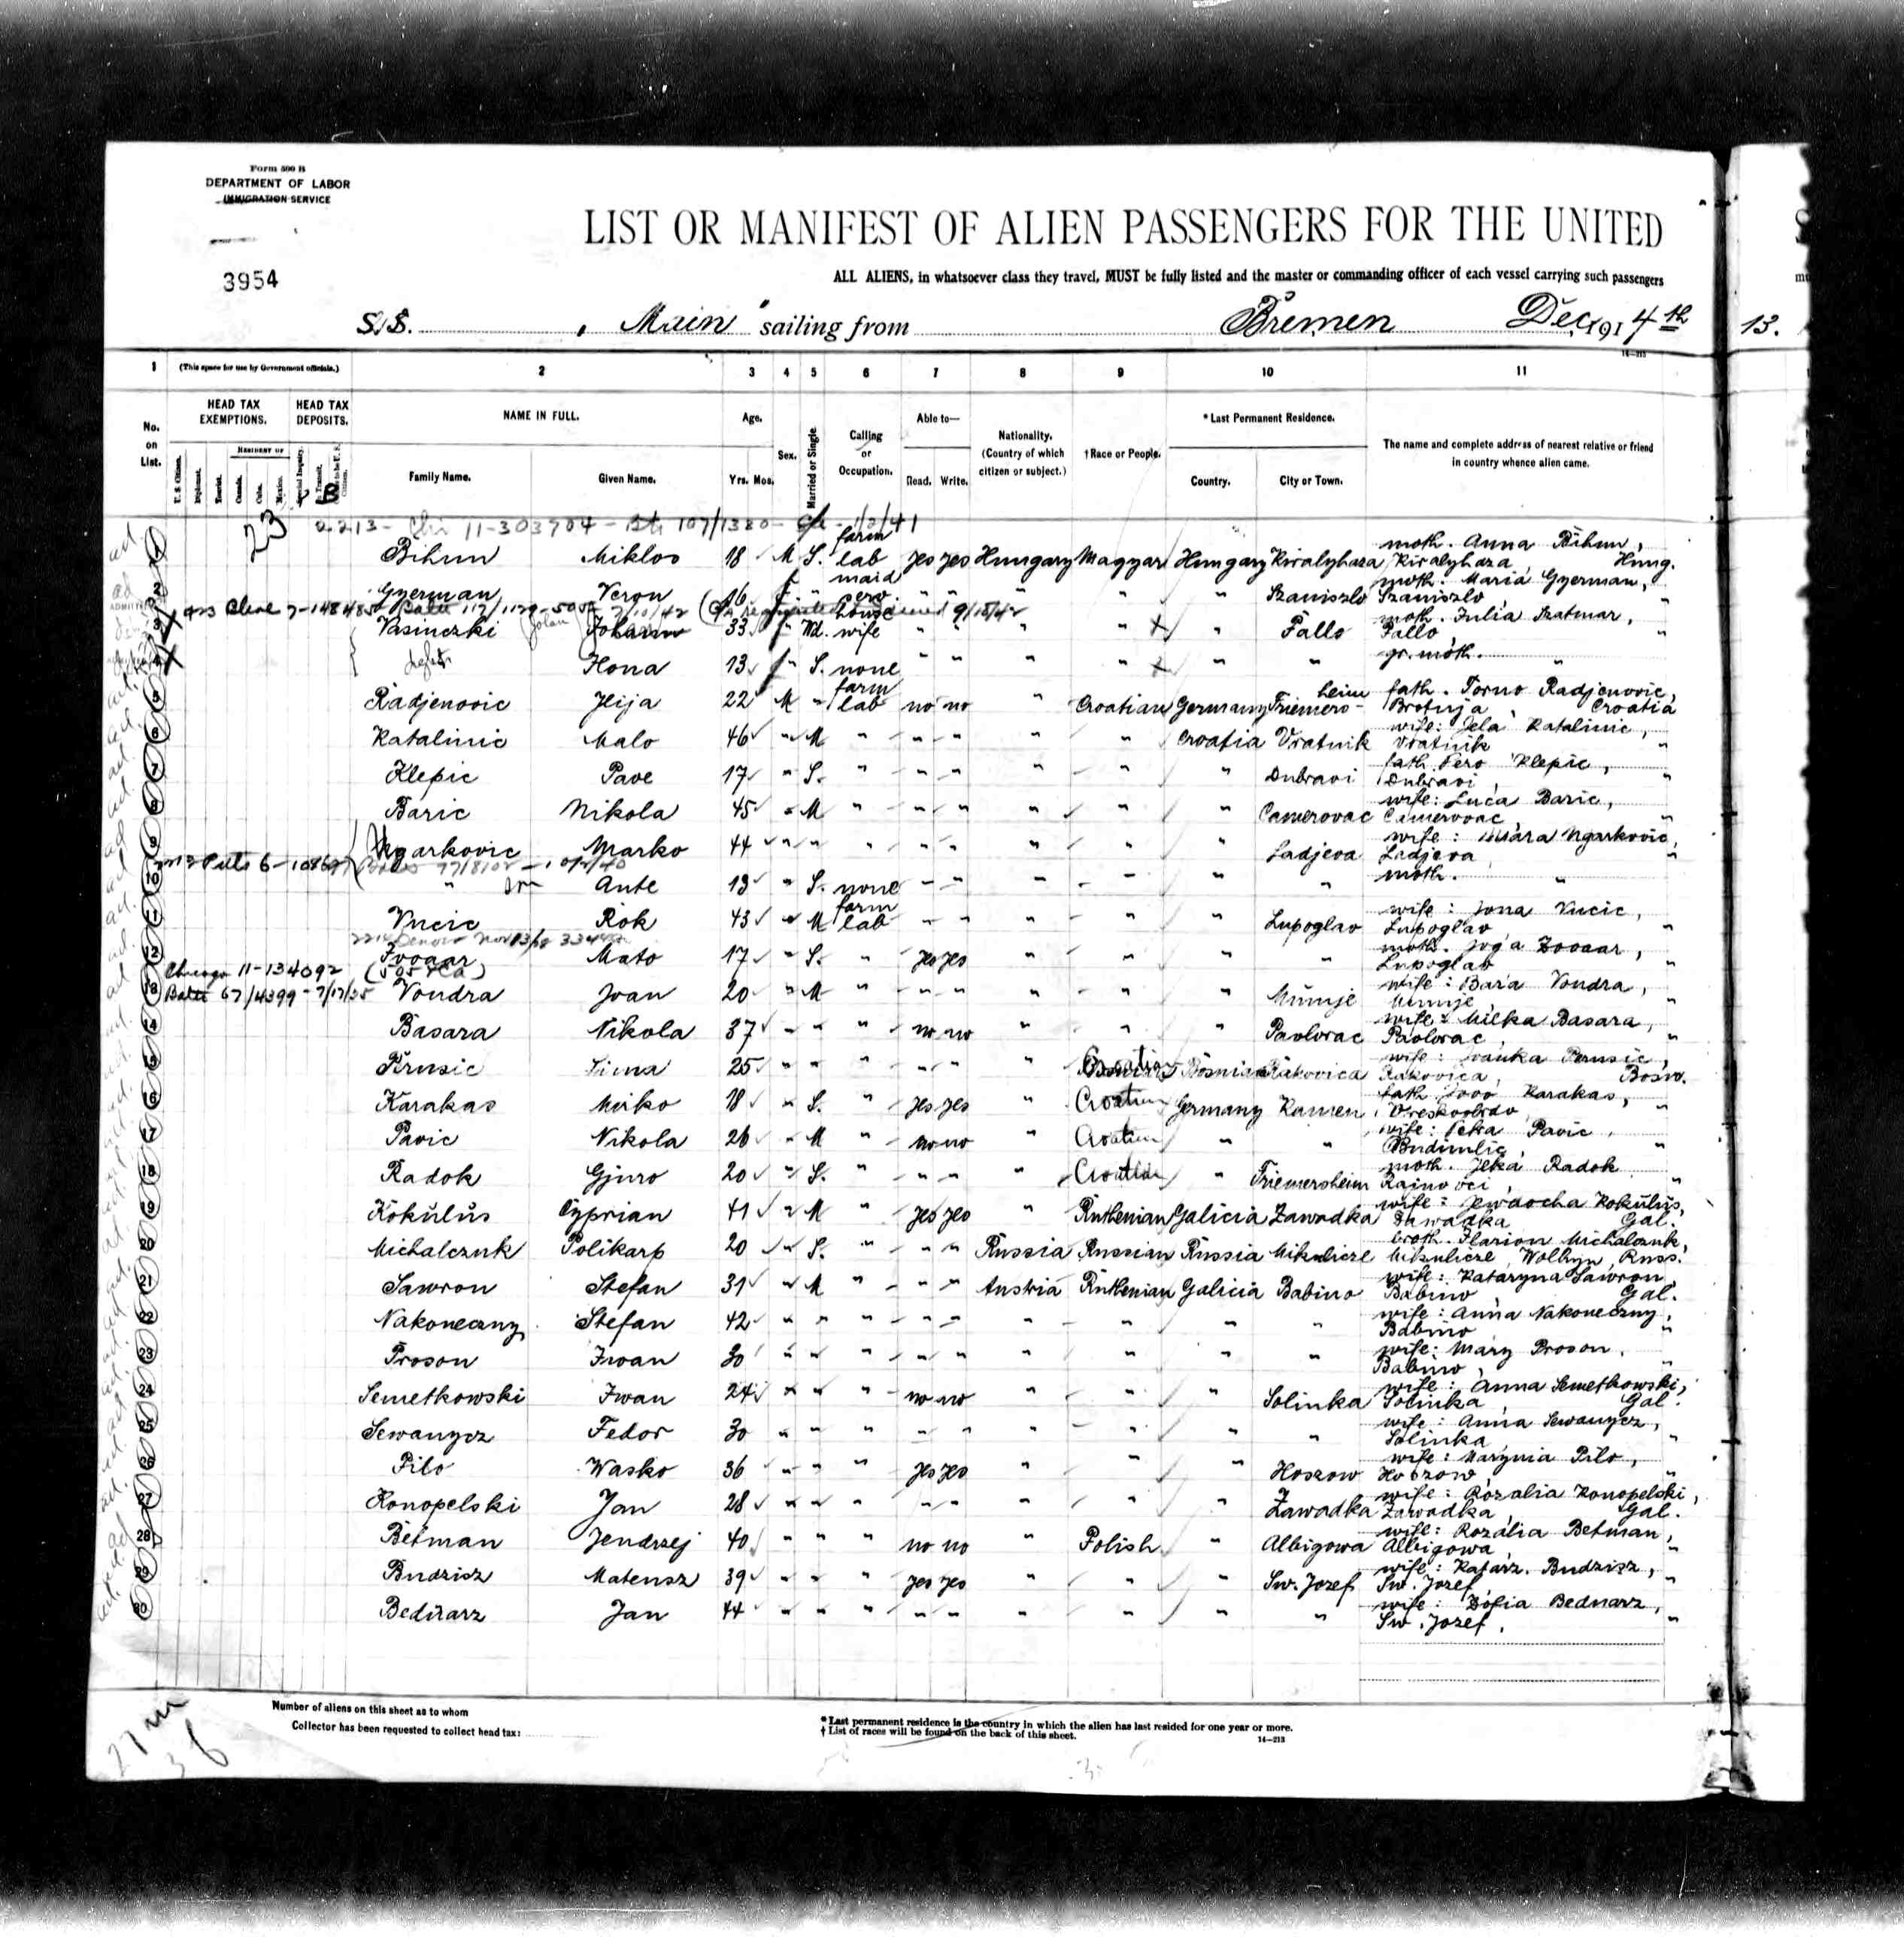 Form 500 B
DEPARTMENT OF LABOR
IMMIGRATION SERVICE
3954
LIST OR MANIFEST OF ALIEN PASSENGERS FOR THE UNITED
ALL ALIENS, in whatsoever class they travel, MUST be fully listed and the master or commanding officer of each vessel carrying such passengers
S.S. "Main" sailing from Bremen Dec. 4th 191 13.
14—213
1 (This space for use by Government officials.) 2 3 4 5 6 7 8 9 10 11
No. on List. HEAD TAX EXEMPTIONS. HEAD TAX DEPOSITS. NAME IN FULL. Age. Sex. Married or Single. Calling or Occupation. Able to— Nationality. (Country of which citizen or subject.) †Race or People. *Last Permanent Residence. The name and complete address of nearest relative or friend in country whence alien came.
U.S. Citizen. Diplomat. Tourist. RESIDENT OF Canada. Cuba. Mexico. Special Inquiry. Family Name. Given Name. Yrs. Mos. Read. Write. Country. City or Town.
23 2213- Chi 11-303704 - 107/1380 - 1/2/41
1 Bihun Miklos 18 M S. farm lab yes yes Hungary Magyar Hungary Kiralyhaza moth. Anna Bihun, Kiralyhaza, Hung.
2 Gyerman Veron 16 f " maid serv. " " " " " Szaniszlo moth. Maria Gyerman, Szaniszlo, "
423 Cleve 7-148485 9/18/42
3 Vasinczki 33 f Wd. house wife " " " " " Fallo moth. Julia Szatmar, Fallo, "
4 Ilona 13 f S. none " " " " " " gr. moth. "
5 Radjenovic Ilija 22 M " farm lab no no " Croatian Germany Friemersheim fath. Torno Radjenovic, Brotnja, Croatia
6 Katalinic Malo 46 " M " " " " " Croatia Vratnik wife: Jela Katalinic, Vratnik "
7 Klepic Pave 17 " S. " " " " " " Dubravi fath. Pero Klepic, Dubravi, "
8 Baric Nikola 45 " M " " " " " " Camerovac wife: Luca Baric, Camerovac, "
9 Ugarkovic Marko 44 " " " " " " " " Ladjeva wife: Mara Ugarkovic, Ladjeva, "
10 " Ante 13 " S. none " " " " " " moth. "
11 Vucic Rok 43 " M farm lab " " " " " Lupoglav wife: Jona Vucic, Lupoglav "
12 Mato 17 " S. " yes yes " " " " moth. Lupoglav "
Chicago 11-134092 (505 rca)
13 Balto 67/4399 - 7/17/35 Vondra Joan 20 " M " " " " " " Munije wife: Bara Vondra, Munije, "
14 Basara Nikola 37 " " " no no " " " Pavlovac wife: Milka Basara, Pavlovac, "
15 Prusic Sima 25 " " " " " " Croatian Bosnia Rakovica wife: Ivanka Prusic, Rakovica, Bosn.
16 Karakas Mirko 18 " S. " yes yes " Croatian Germany Kamen fath. Jovo Karakas, "
17 Pavic Nikola 26 " M " no no " Croatian " " wife: Petra Pavic, Budimlic, "
18 Radok Gjuro 20 " S. " " " " Croatian " Friemersheim moth. Jeka Radok "
19 Kokulus Cyprian 41 " M " yes yes " Ruthenian Galicia Zawadka wife: Jewdocha Kokulus, Zawadka Gal.
20 Michalczuk Polikarp 20 " S. " " " Russia Russian Russia Mikulicze broth. Ilarion Michalczuk, Mikulicze, Wolhyn, Russ.
21 Sawron Stefan 31 " M " " " Austria Ruthenian Galicia Babino wife: Kataryna Sawron, Babino, Gal.
22 Nakoneczny Stefan 42 " " " " " " " " " wife: Anna Nakoneczny, Babino, "
23 Proson Iwan 30 " " " " " " " " " wife: Mary Proson, Babino, "
24 Semetkowski Iwan 24 " " " no no " " " Solinka wife: Anna Semetkowski, Solinka, Gal.
25 Sewanycz Fedor 30 " " " " " " " " " wife: Anna Sewanycz, Solinka, "
26 Pilo Wasko 36 " " " yes yes " " " Hoszow wife: Marynia Pilo, Hoszow, "
27 Konopelski Jan 28 " " " " " " " " Zawadka wife: Rozalia Konopelski, Zawadka, Gal.
28 Betman Jendrzej 40 " " " no no " Polish " Albigowa wife: Rozalia Betman, Albigowa, "
29 Budzisz Mateusz 39 " " " yes yes " " " Sw. Jozef wife: Katarz. Budzisz, Sw. Jozef, "
30 Bednarz Jan 44 " " " " " " " " " wife: Zofia Bednarz, Sw. Jozef. "
27 m
3 f
Number of aliens on this sheet as to whom
Collector has been requested to collect head tax:
*Last permanent residence is the country in which the alien has last resided for one year or more.
†List of races will be found on the back of this sheet.
14—213